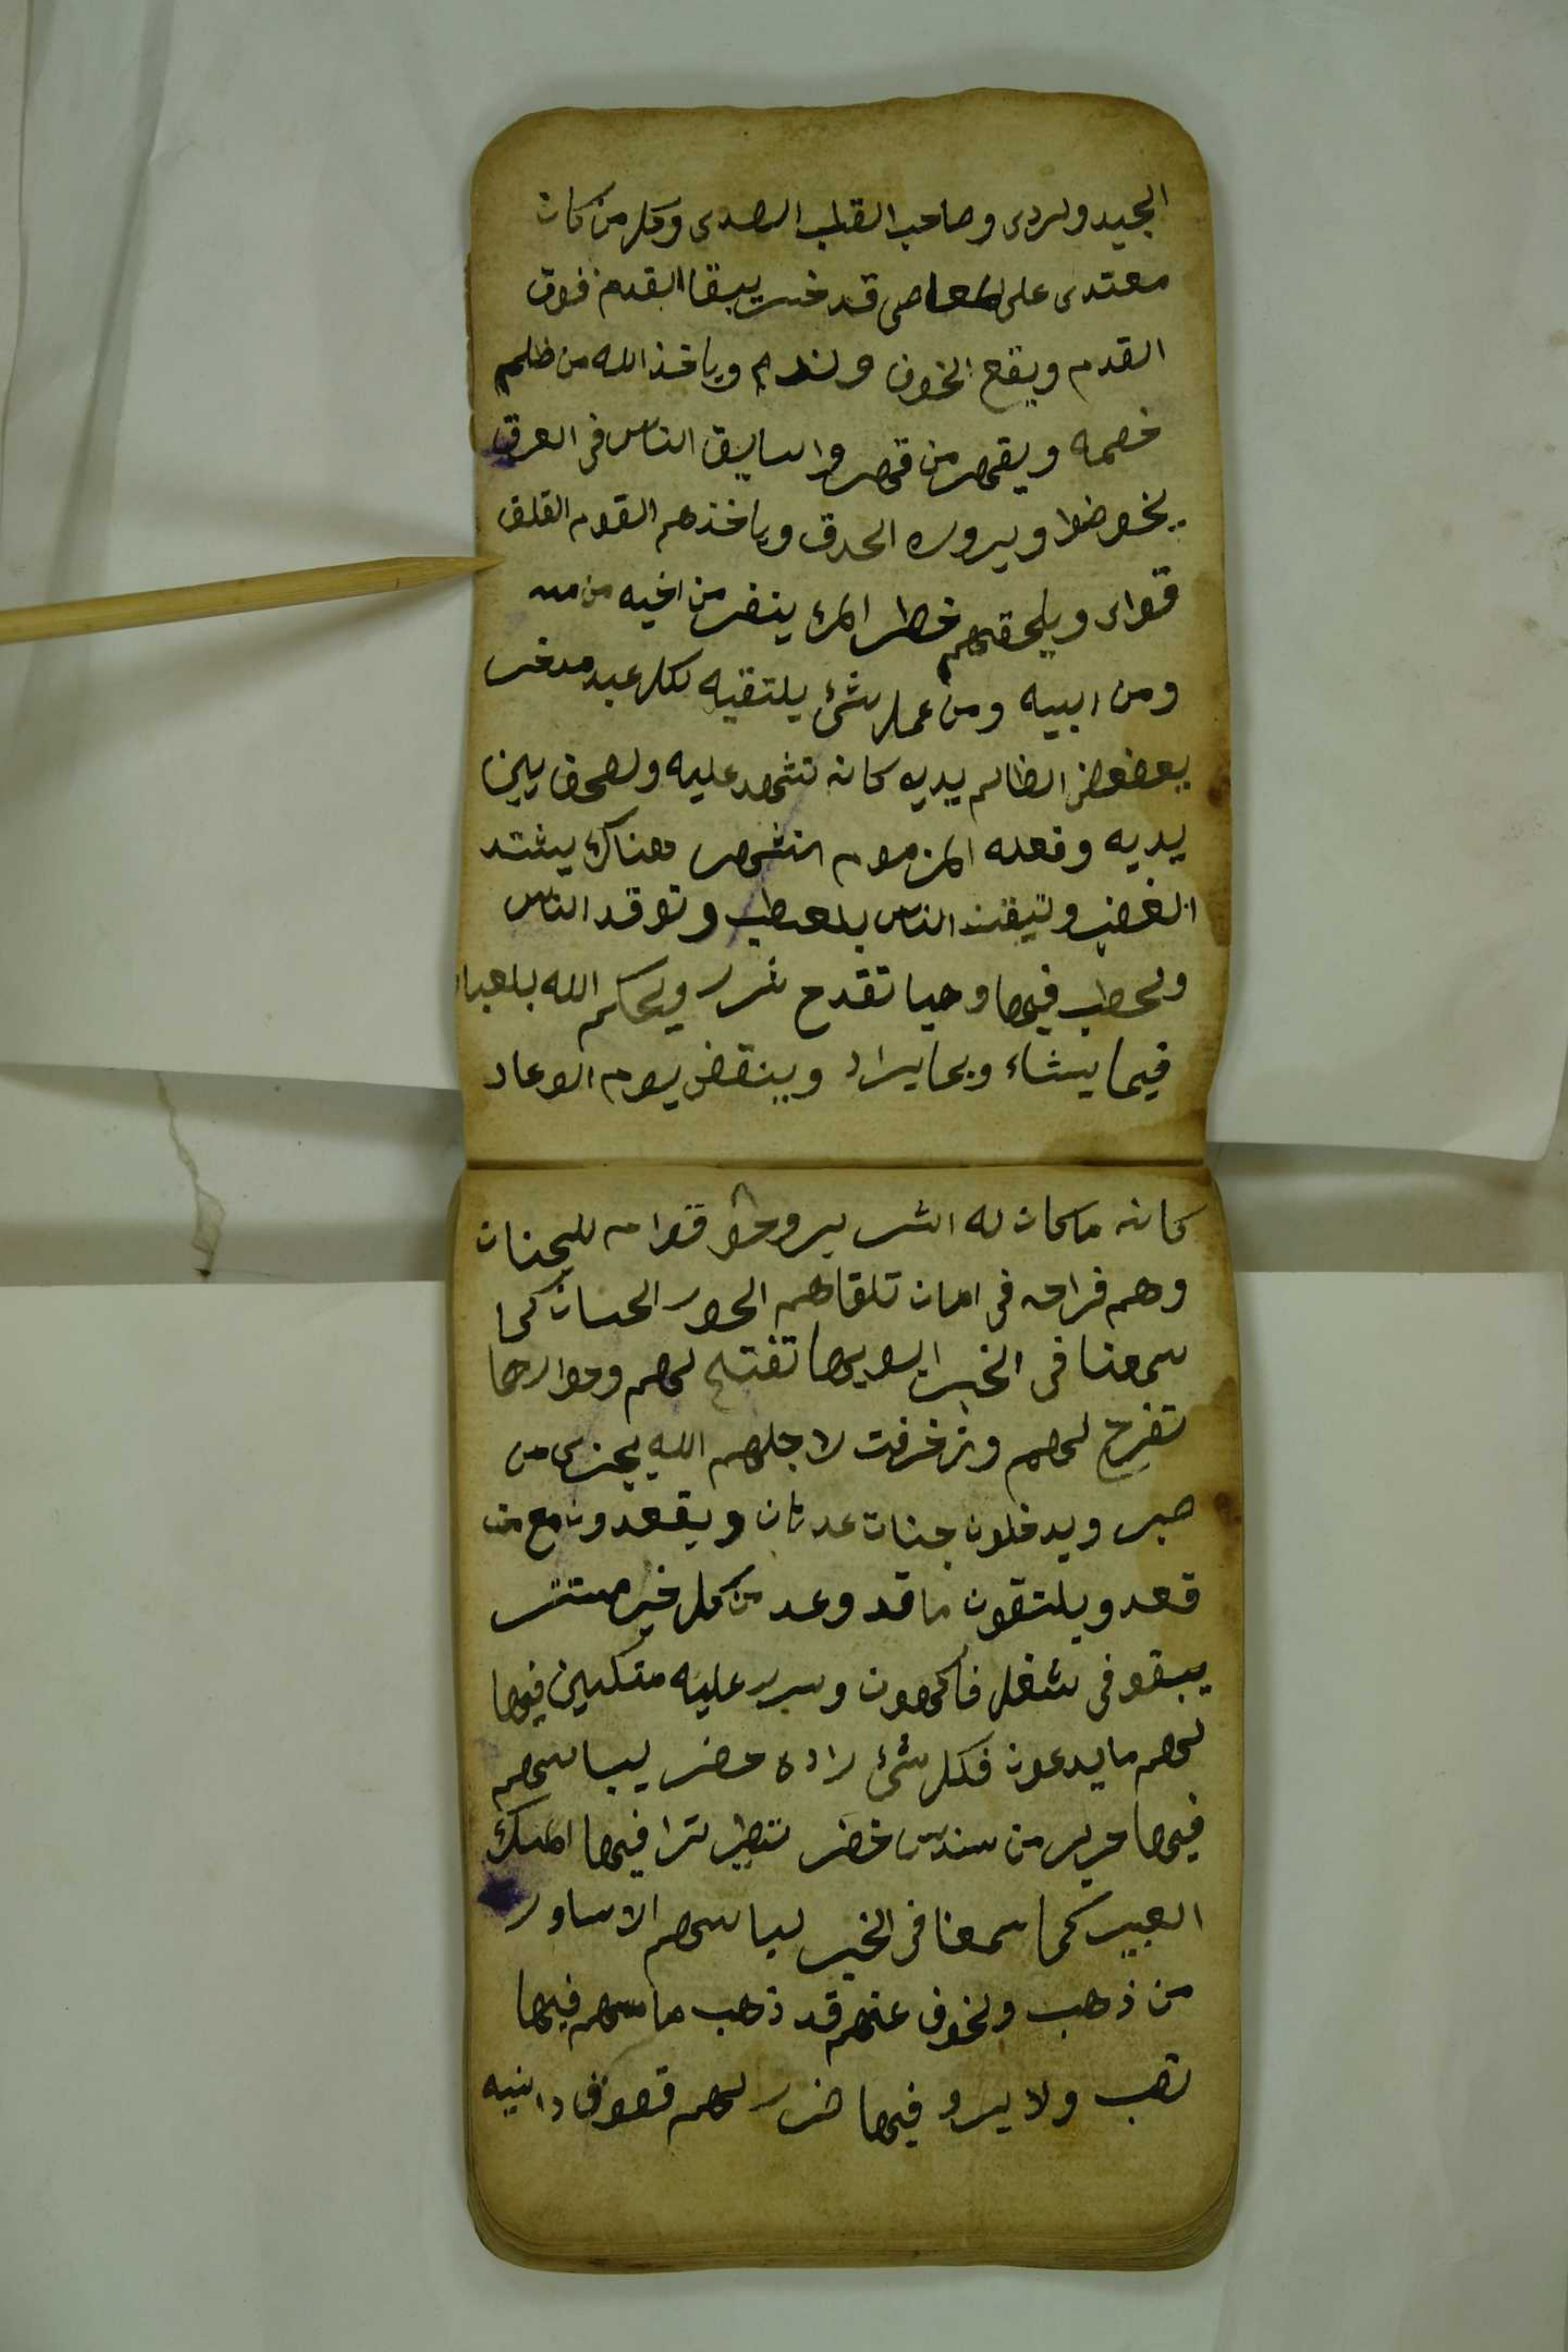 الجيد ولردى وصاحب القلب الصدى وكلمن كان
معتدى على لمعاصى قد خسر يبقا القدم فوق
القدم ويقع الخوف ولندم وياخذ الله من ظلم
خصمه ويقهر من قهر وا سايق الناس فى العرق
يخوضوا ويبروه الحدق وياخذهم القوم القلق
قواى ويلحقهم خطر المرء ينفر من اخيه من
ومن ابيه ومن عمل شئ يلتقيه لكل عبد مدخر
يعض الظالم يديه كانه تشهد عليه ولصحف بين
يديه وفعله المزموم انتشهر هناك يشتد
الغضب وتيقنت الناس بلعطب وتوقد الناس
ولحطب فيها وهيا تقدح شرر ويحكم الله بلعباد
فيما يشاء وبما يراد وينقض يوم الوعاد
كانه ماكان له اشر يروحو قوام للجنان
وهم فراحه فى امان تلقاهم الحور الحسان كما
سمعنا فى الخبر ابوبها تفتح لهم وحوارها
تفرح لهم وزخرفت لاجلهم الله يجزى من
صبر ويدخلون جنات عدنان ويقعدون مع من
قعد ويلتقون ما قد وعد من كل خير مستتر
يبقو فى شغل فاكهون وسرر عليه متكين فيها
لهم ما يدعون فكل شئ راده حضر لباسهم
فيها حرير من سندس خضر تنظر ترا فيها المسك
العبير كما سمعنا فى الخبر لباسهم الاساور
من ذهب ولخوف عنهم قد ذهب ما مسهم فيها
تعب ولا يرو فيها ضرر لهم قطوف دانيه